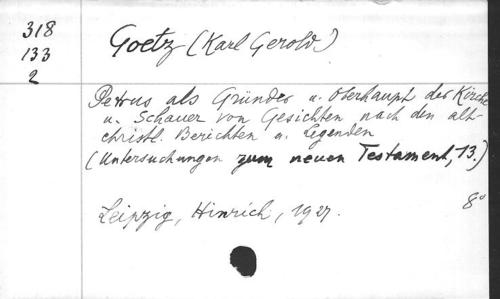 318
133
2
Goetz (Karl Gerold)
Petrus als Gründer u. Oberhaupt der Kirche
u. Schauer von Gesichten nach den alt-
christl. Berichten u. Legenden
(Untersuchungen zum neuen Testament, 13.)
Leipzig, Hinrich, 1927.
8°